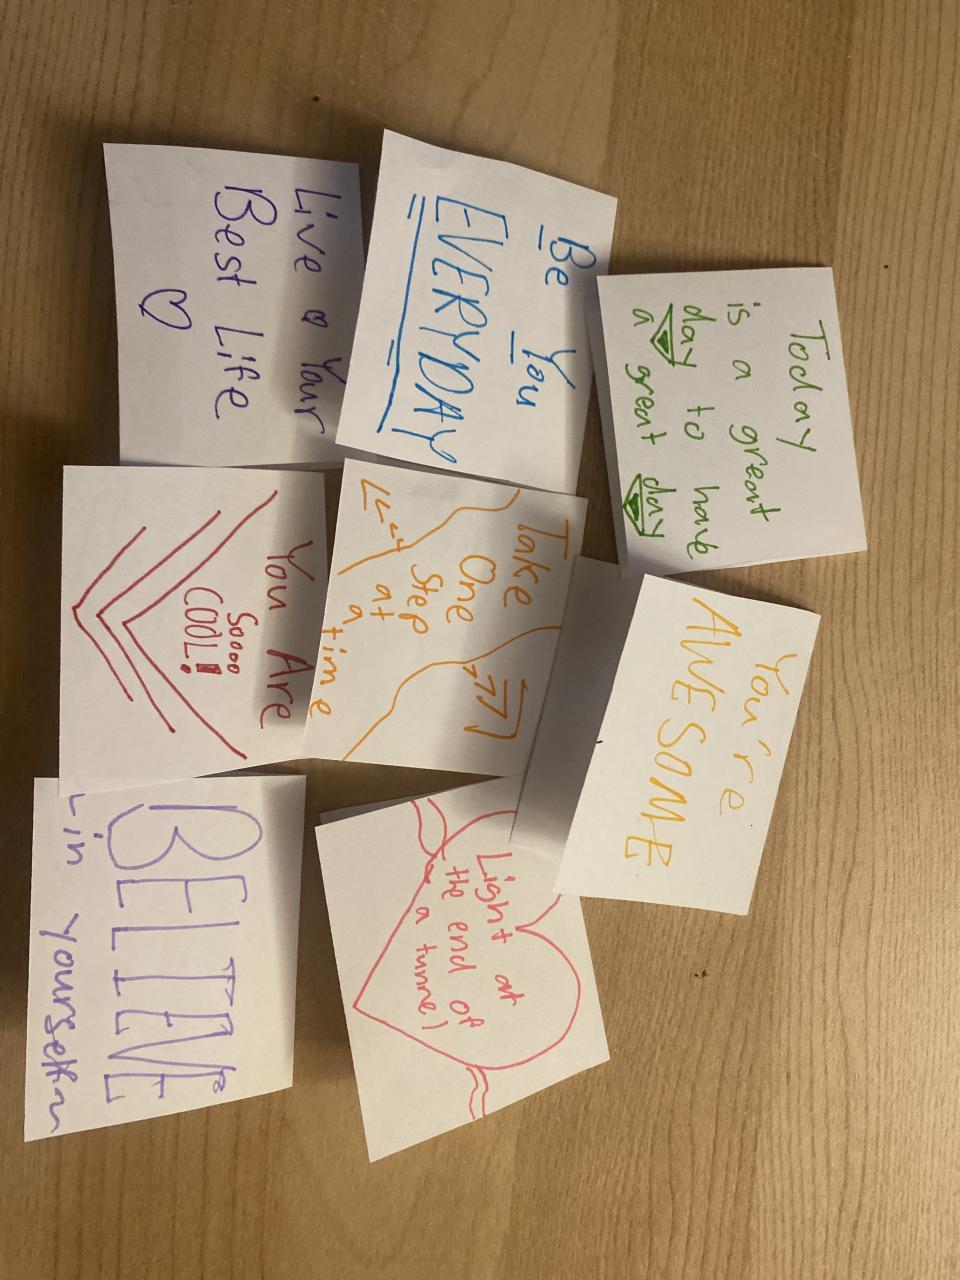 Today
is a great
day to have
a great day
Be You
EVERYDAY
Live Your
Best Life
You're
AWESOME
Take
One
Step
at
a time
You Are
Soooo
COOL!
Light at
the end of
a tunnel
BELIEVE
in yourself